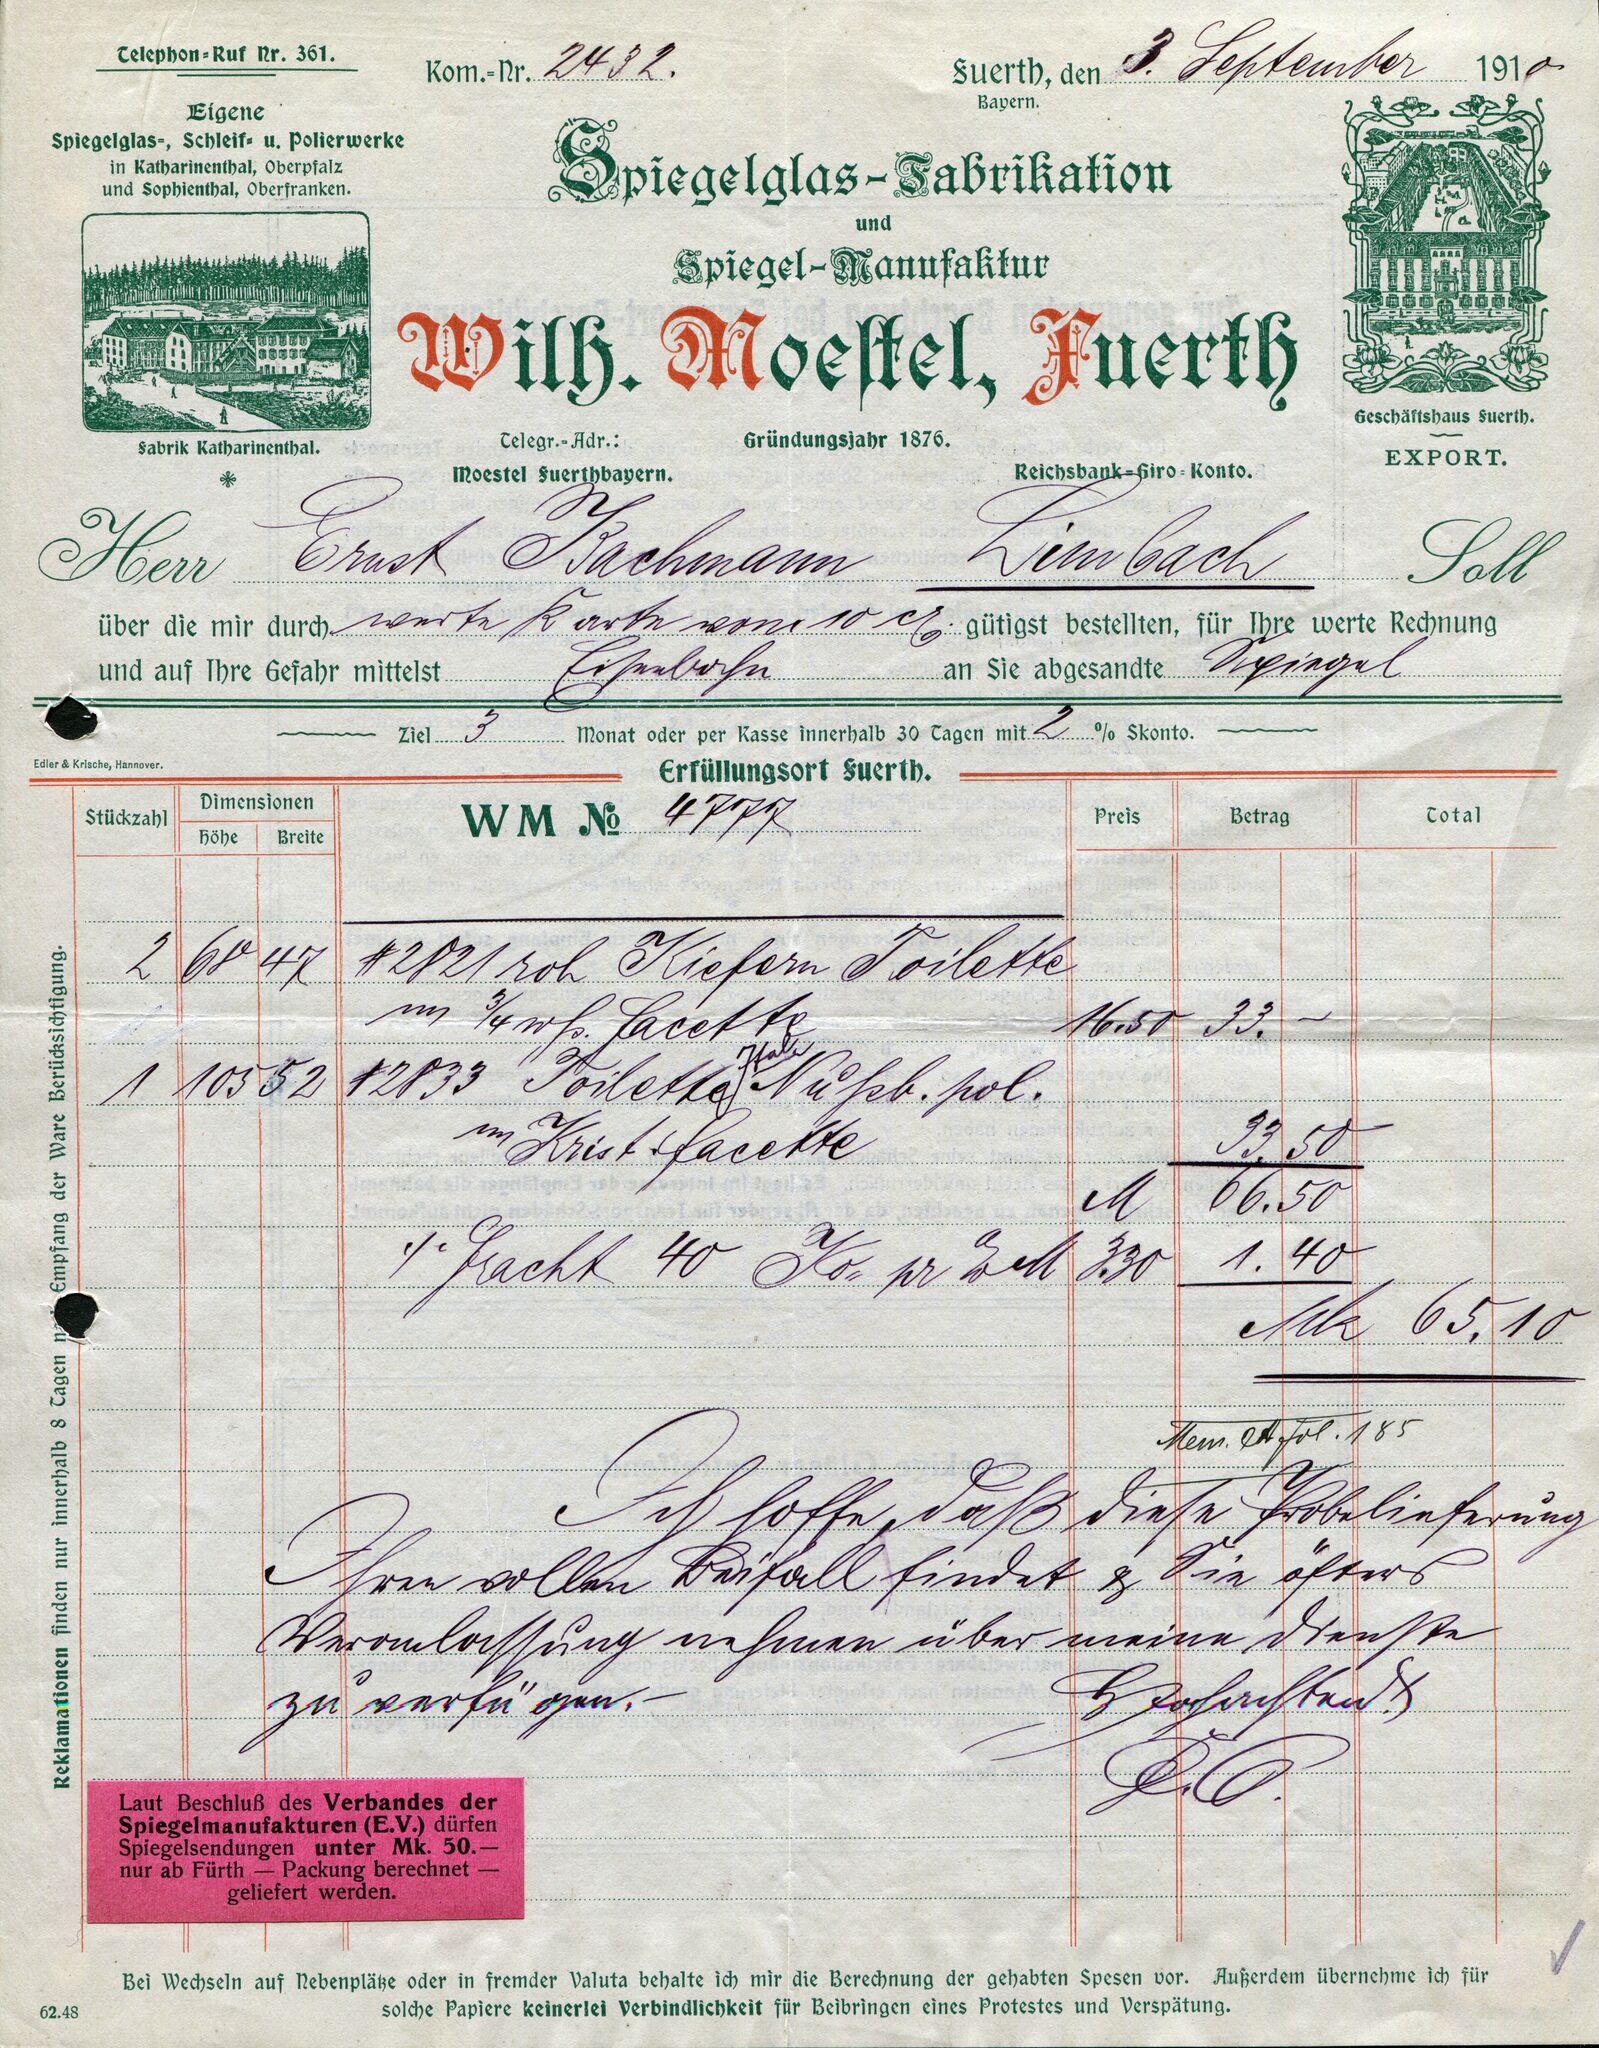 Telephon-Ruf Nr. 361.
Kom.-Nr. 2432.
Fuerth, den 3. September 1910
Bayern.
Eigene
Spiegelglas-, Schleif- u. Polierwerke
in Katharinenthal, Oberpfalz
und Sophienthal, Oberfranken.
Fabrik Katharinenthal.
Spiegelglas-Fabrikation
und
Spiegel-Manufaktur
Wilh. Moestel, Fuerth
Telegr.-Adr.:
Moestel Fuerthbayern.
Gründungsjahr 1876.
Reichsbank-Giro-Konto.
Geschäftshaus Fuerth.
EXPORT.
Herr Ernst Bachmann Limbach Soll
über die mir durch werte Karte vom 10 gütigst bestellten, für Ihre werte Rechnung
und auf Ihre Gefahr mittelst Eisenbahn an Sie abgesandte Spiegel
Ziel 3 Monat oder per Kasse innerhalb 30 Tagen mit 2 % Skonto.
Edler & Krische, Hannover.
Erfüllungsort Fuerth.
Stückzahl Dimensionen Höhe Breite WM No 4777 Preis Betrag Total
2 68 47 #2821 roh Kiefern Toilette
m 3/4 wß. Facette 16.50 33.–
1 105 52 #2833 Toilette Nußb. pol.
m Krist. facette 33.50
M 66.50
Fracht 40 Ko. pr M 3.30 1.40
Mk 65.10
Mem. fol. 185
Ich hoffe, daß diese Probelieferung
Ihren vollen Beifall findet & Sie öfters
Veranlassung nehmen über meine Dienste
zu verfügen.–
Hochachtend
Reklamationen finden nur innerhalb 8 Tagen Empfang der Ware Berücksichtigung.
Laut Beschluß des Verbandes der
Spiegelmanufakturen (E.V.) dürfen
Spiegelsendungen unter Mk. 50.—
nur ab Fürth — Packung berechnet —
geliefert werden.
Bei Wechseln auf Nebenplätze oder in fremder Valuta behalte ich mir die Berechnung der gehabten Spesen vor. Außerdem übernehme ich für
solche Papiere keinerlei Verbindlichkeit für Beibringen eines Protestes und Verspätung.
62.48